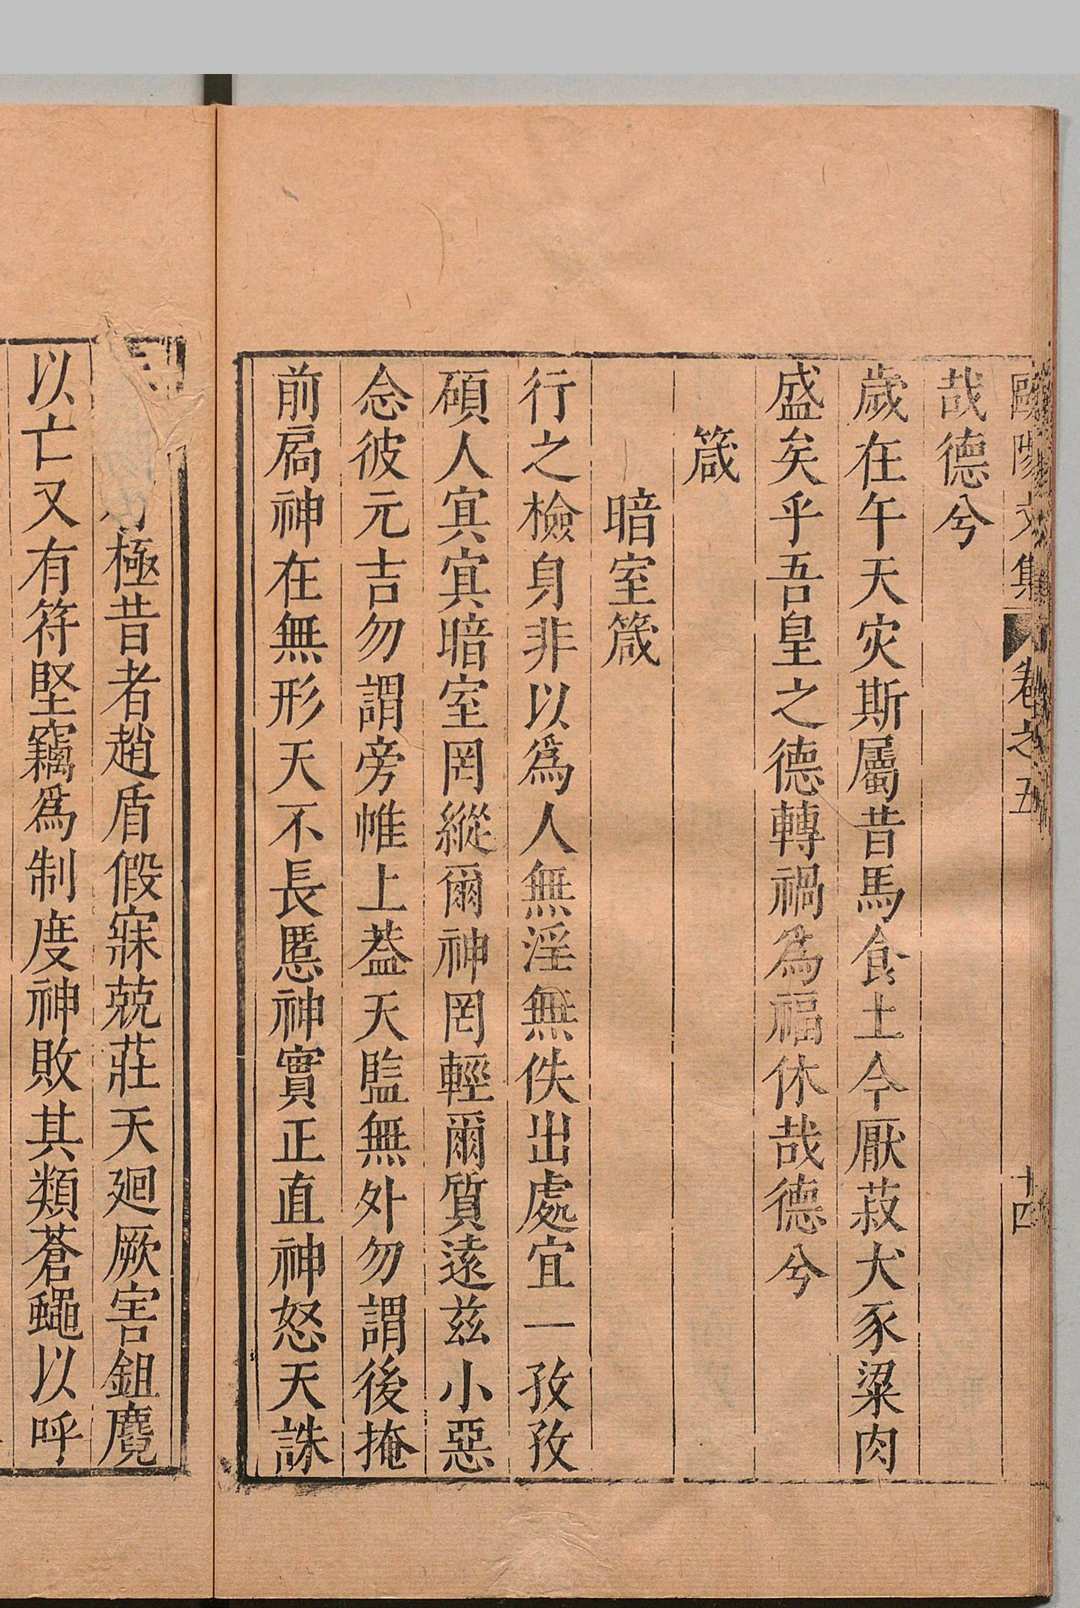 歐陽文集 卷之五 十四
哉德兮
歲在午天灾斯屬昔馬食土今厭菽犬豕粱肉
盛矣乎吾皇之德轉禍爲福休哉德兮
箴
暗室箴
行之檢身非以爲人無淫無佚出處宜一孜孜
碩人寘寘暗室罔縱爾神罔輕爾質遠兹小惡
念彼元吉勿謂旁帷上葢天監無外勿謂後掩
前扃神在無形天不長慝神實正直神怒天誅
極昔者趙盾假寐兢莊天廻厥害鉏麑
以亡又有符堅竊爲制度神敗其類蒼蠅以呼